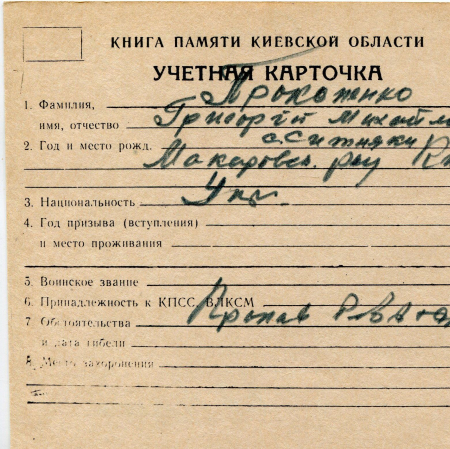 КНИГА ПАМЯТИ КИЕВСКОЙ ОБЛАСТИ
УЧЕТНАЯ КАРТОЧКА
1. Фамилия, Прокоженко
имя, отчество Григорій Михайл
с. Ситняки
2. Год и место рожд.
Макаровск. рну К
3. Национальность Укр.
4. Год призыва (вступления)
и место проживания
5. Воинское звание
6. Принадлежность к КПСС, ВЛКСМ
7. Обстоятельства Пропав
и дата гибели
8. Место захоронения